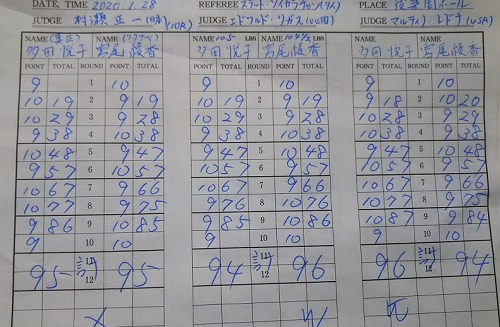 DATE, TIME 2020.1.28 REFEREE PLACE 後楽園ホール
JUDGE 村瀬正一(日本) JUDGE エドワルド・リガス(比国) JUDGE (USA)
NAME NAME NAME 105 LBS NAME LBS NAME NAME
多田悦子 宮尾綾香 多田悦子 宮尾綾香 多田悦子 宮尾綾香
POINT TOTAL ROUND POINT TOTAL POINT TOTAL ROUND POINT TOTAL POINT TOTAL ROUND POINT TOTAL
9 1 10 9 1 10 9 1 10
10 19 2 9 19 10 19 2 9 19 9 18 2 10 20
10 29 3 9 28 10 29 3 9 28 10 28 3 9 29
9 38 4 10 38 9 38 4 10 38 10 38 4 9 38
10 48 5 9 47 9 47 5 10 48 9 47 5 10 48
9 57 6 10 57 10 57 6 9 57 10 57 6 9 57
10 67 7 9 66 10 67 7 9 66 10 67 7 9 66
10 77 8 9 75 9 76 8 10 76 10 77 8 9 75
9 86 9 10 85 9 85 9 10 86 10 87 9 9 84
9 10 10 9 10 10 9 10 10
95 計 11 12 95 94 計 11 12 96 96 計 11 12 94